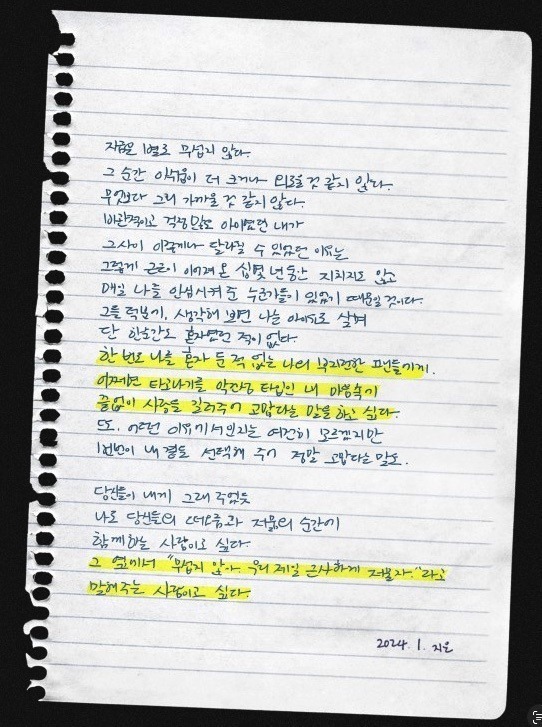 저물은 별로 무섭지 않다.
그 순간 아쉬움이 더 크거나 외로울 것 같지 않다.
무엇보다 그리 가까울 것 같지 않다.
비관적이고 걱정 많던 아이였던 내가
그사이 이렇게나 달라질 수 있었던 이유는
그렇게 근근이 이어져 온 십몇 년 동안 지치지도 않고
매일 나를 안심시켜 준 누군가들이 있었기 때문일 것이다.
그들 덕분에, 생각해 보면 나는 아이유로 살며
단 한순간도 혼자였던 적이 없다.
한 번도 나를 혼자 둔 적 없는 나의 부지런한 팬들에게.
어쩌면 타고나기를 악건성 타입인 내 마음속에
끝없이 사랑을 길러주어 고맙다는 말을 하고 싶다.
또, 어떤 이유에서인지는 여전히 모르겠지만
1번번이 내 곁을 선택해 주어 정말 고맙다는 말도.
당신들이 내게 그래 주었듯
나도 당신들의 떠오름과 저묾의 순간에
함께하는 사람이고 싶다.
그 옆에서 "무섭지 않아. 우리 제일 근사하게 저물자." 라고
말해주는 사람이고 싶다.
2024. 1. 지은